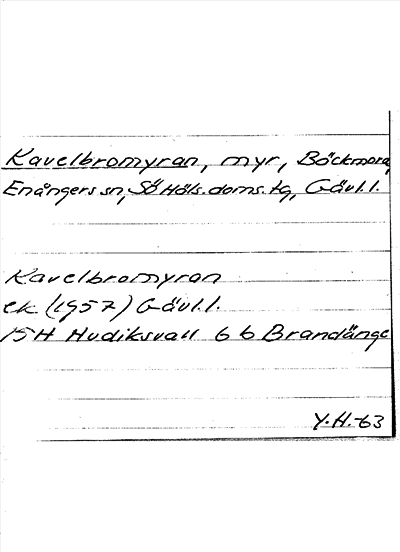 Kavelbromyran, myr, Böckmora,
Enångers sn, Sö Häls. doms. tg, Gävl.l.
Kavelbromyran
ek (1957) Gävl.l.
15H Hudiksvall 6 b Brandänge
Y.H.-63